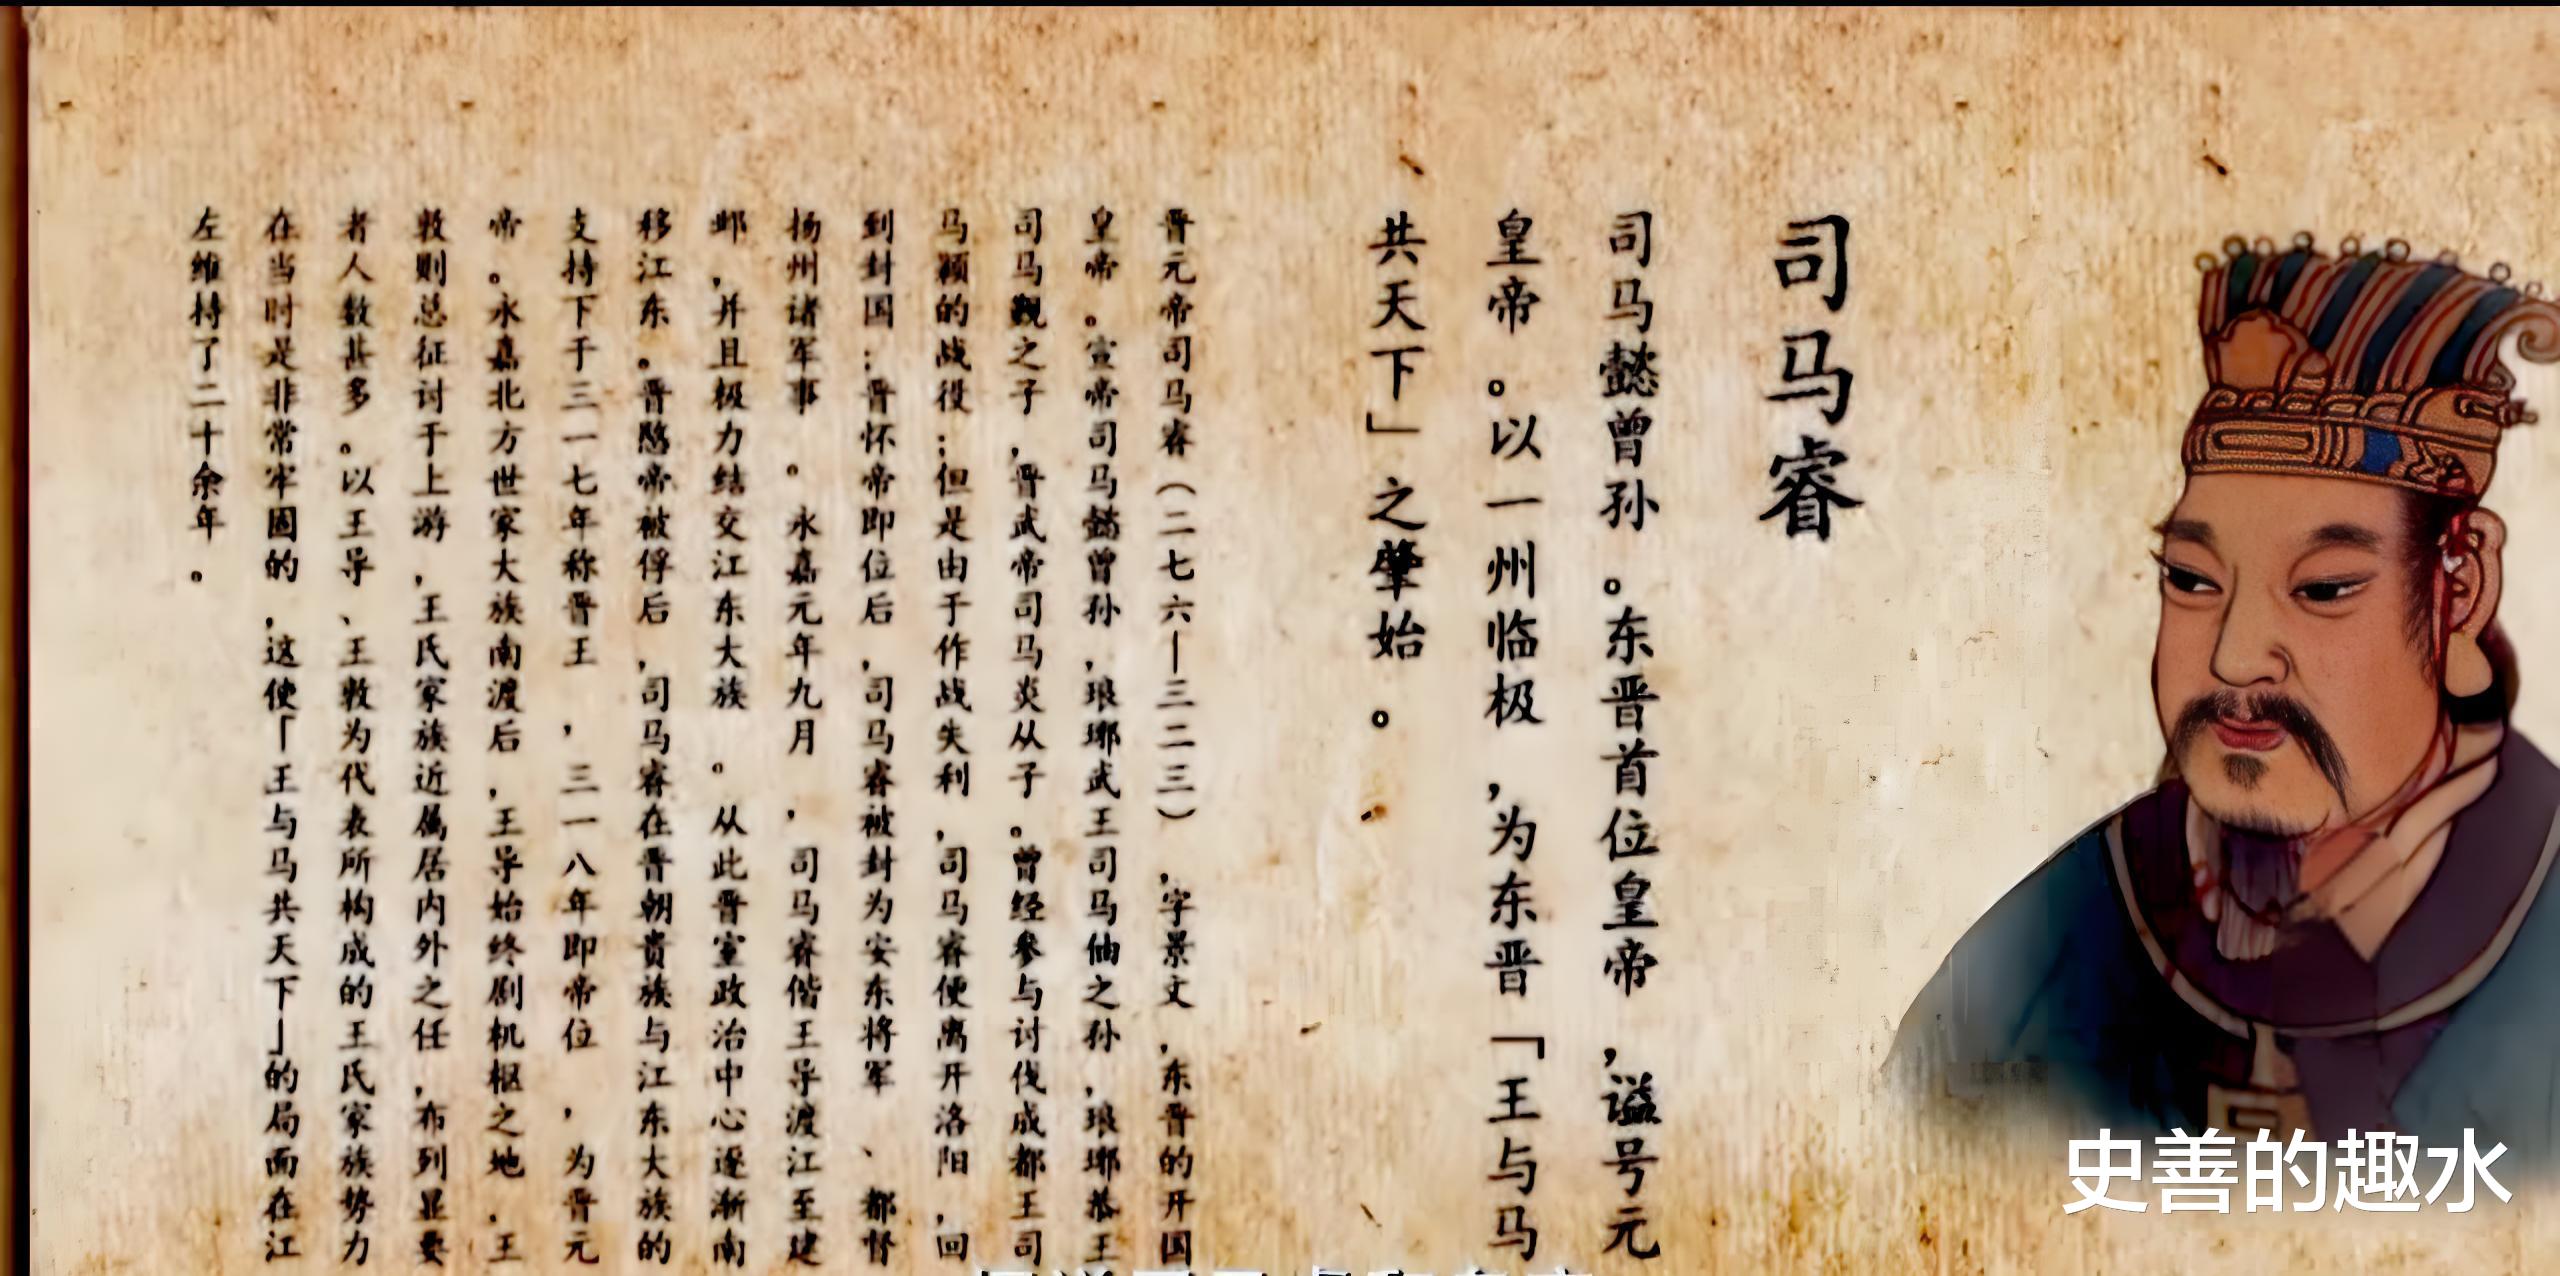 司马睿
司马懿曾孙。东晋首位皇帝,谥号元
皇帝。以一州临极,为东晋「王与马
共天下」之肇始。
晋元帝司马睿(二七六—三二三),字景文,东晋的开国
皇帝。宣帝司马懿曾孙,琅琊武王司马伷之孙,琅琊恭王
司马觐之子,晋武帝司马炎从子。曾经参与讨伐成都王司
马颖的战役;但是由于作战失利,司马睿便离开洛阳,回
到封国;晋怀帝即位后,司马睿被封为安东将军、都督
扬州诸军事。永嘉元年九月,司马睿偕王导渡江至建
邺,并且极力结交江东大族。从此晋室政治中心逐渐南
移江东。晋愍帝被俘后,司马睿在晋朝贵族与江东大族的
支持下于三一七年称晋王,三一八年即帝位,为晋元
帝。永嘉北方世家大族南渡后,王导始终剧机枢之地,王
敦则总征讨于上游,王氏家族近属居内外之任,布列显要
者人数甚多。以王导、王敦为代表所构成的王氏家族势力
在当时是非常牢固的,这使「王与马共天下」的局面在江
左维持了二十余年。
史善的趣水